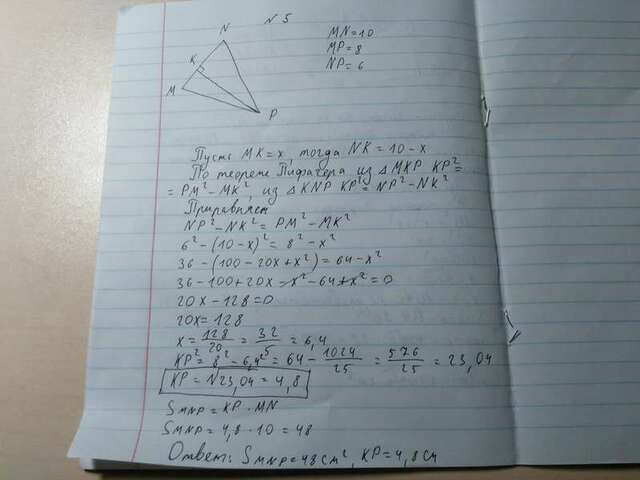 N 5
N
K
M
P
MN=10
MP=8
NP=6
Пусть MK=x, тогда NK=10-x
По теореме Пифагера из △MKP KP²=
=PM²-MK², из △KNP KP²=NP²-NK²
Приравняем
NP²-NK²=PM²-MK²
6²-(10-x)²=8²-x²
36-(100-20x+x²)=64-x²
36-100+20x-x²-64+x²=0
20x-128=0
20x=128
x=128/20=32/5=6,4
KP²=8²-6,4²=64-1024/25=576/25=23,04
KP=√23,04=4,8
SMNP=KP·MN
SMNP=4,8·10=48
Ответ: SMNP=48см², KP=4,8см